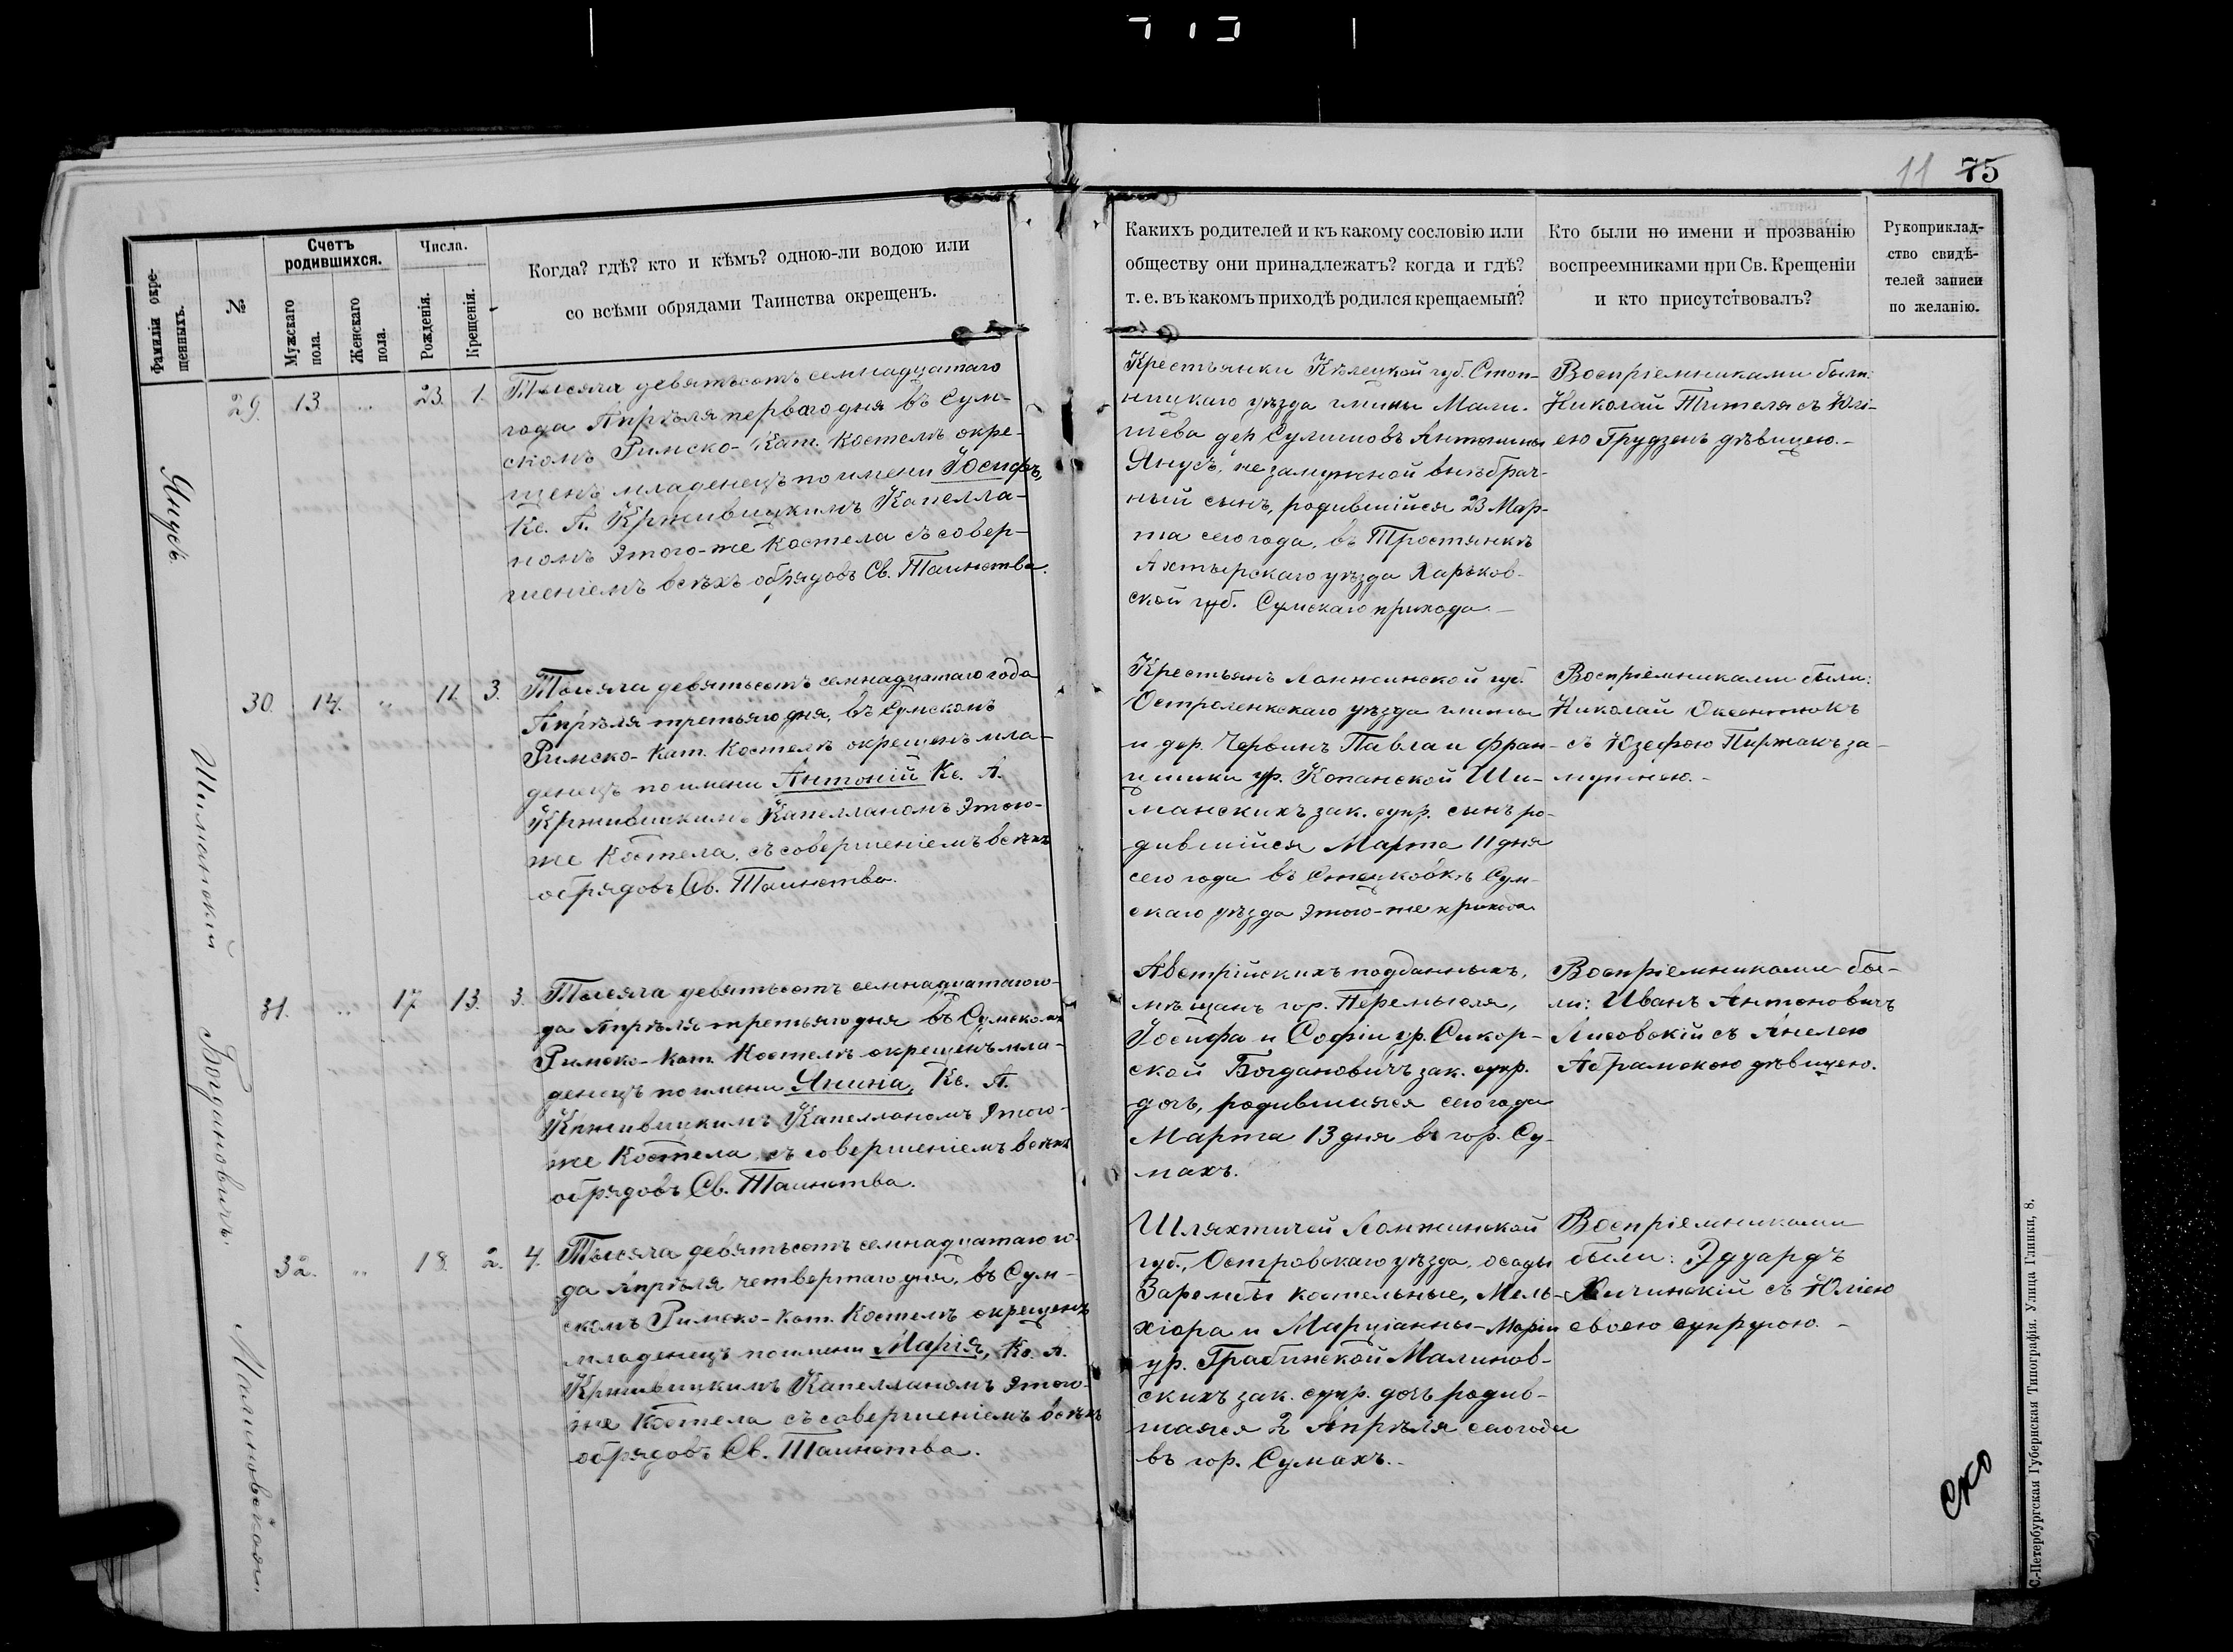 11 75
Фамиліи окре-
щенныхъ.
№
Счетъ
родившихся.
Мужскаго
пола.
Женскаго
пола.
Числа.
Рожденія.
Крещенія.
Когда? гдѣ? кто и кѣмъ? одною-ли водою или
со всѣми обрядами Таинства окрещенъ.
Какихъ родителей и къ какому сословію или
обществу они принадлежатъ? когда и гдѣ?
т. е. въ какомъ приходѣ родился крещаемый?
Кто были по имени и прозванію
воспреемниками при Св. Крещеніи
и кто присутствовалъ?
Рукоприклад-
ство свидѣ-
телей записи
по желанію.
Янусъ.
29. 13 .. 23. 1.
Тысяча девятьсотъ семнадцатаго
года Апрѣля перваго дня въ Сум-
скомъ Римско-Кат. Костелѣ окре-
щенъ младенецъ по имени Іосифъ,
Кс. А. Крживицкимъ Капелла-
номъ этого-же Костела съ совер-
шеніемъ всѣхъ обрядовъ Св. Таинства.
Крестьянки Кѣлецкой губ. Стоп-
ницкаго уѣзда гмины Мали-
шева дер. Сулишовъ Антонины
Янусъ, незамужной внѣбрач-
ный сынъ, родившійся 23 Мар-
та сего года, въ Тростянкѣ
Ахтырскаго уѣзда Харьков-
ской губ. Сумскаго прихода.
Воспріемниками были:
Николай Тителя съ Юлі-
ею Грудзенъ дѣвицею.-
Шиманскій
30. 14. .. 11. 3.
Тысяча девятьсотъ семнадцатаго года
Апрѣля третьяго дня, въ Сумскомъ
Римско-Кат. Костелѣ окрещенъ мла-
денецъ по имени Антоній Кс. А.
Крживицкимъ Капелланомъ этого-
же Костела, съ совершеніемъ всѣхъ
обрядовъ Св. Таинства.
Крестьянъ Ломжинской губ.
Остроленкскаго уѣзда гмины
и дер. Червинъ Павла и Фран-
цишки ур. Копанской Ши-
манскихъ зак. супр. сынъ ро-
дившійся Марта 11 дня
сего года въ Сум-
скаго уѣзда этого-же прихода
Воспріемниками были:
Николай Оксентюкъ
съ Юзефою Пиржакъ за-
мужнею.-
Богдановичъ.
31. .. 17. 13. 3.
Тысяча девятьсотъ семнадцатаго го-
да Апрѣля третьяго дня въ Сумскомъ
Римско-Кат. Костелѣ окрещенъ мла-
денецъ по имени Янина, Кс. А.
Крживицкимъ Капелланомъ этого-
же Костела, съ совершеніемъ всѣхъ
обрядовъ Св. Таинства.
Австрійскихъ подданныхъ,
мѣщанъ гор. Перемысля,
Іосифа и Софіи ур. Сикор-
ской Богдановичъ зак. супр.
дочь, родившаяся сего года
Марта 13 дня въ гор. Су-
махъ.
Воспріемниками бы-
ли: Иванъ Антоновичъ
Лисовскій съ Анелею
Абрамскою дѣвицею.
Малиновская.
32. .. 18. 2. 4.
Тысяча девятьсотъ семнадцатаго го-
да Апрѣля четвертаго дня, въ Сум-
скомъ Римско-Кат. Костелѣ окрещенъ
младенецъ по имени Марія, Кс. А.
Крживицкимъ Капелланомъ этого-
же Костела съ совершеніемъ всѣхъ
обрядовъ Св. Таинства.
Шляхтичей Ломжинской
губ., Островскаго уѣзда, осады
Зарембы костельные, Мель-
хіора и Марціанны-Маріи
ур. Грабинской Малинов-
скихъ зак. супр. дочь родив-
шаяся 2 Апрѣля сего года
въ гор. Сумахъ.-
Воспріемниками
были: Эдуардъ
съ Юліею
своею супругою.-
С.-Петербургская Губернская Типографія. Улица Глинки, 8.